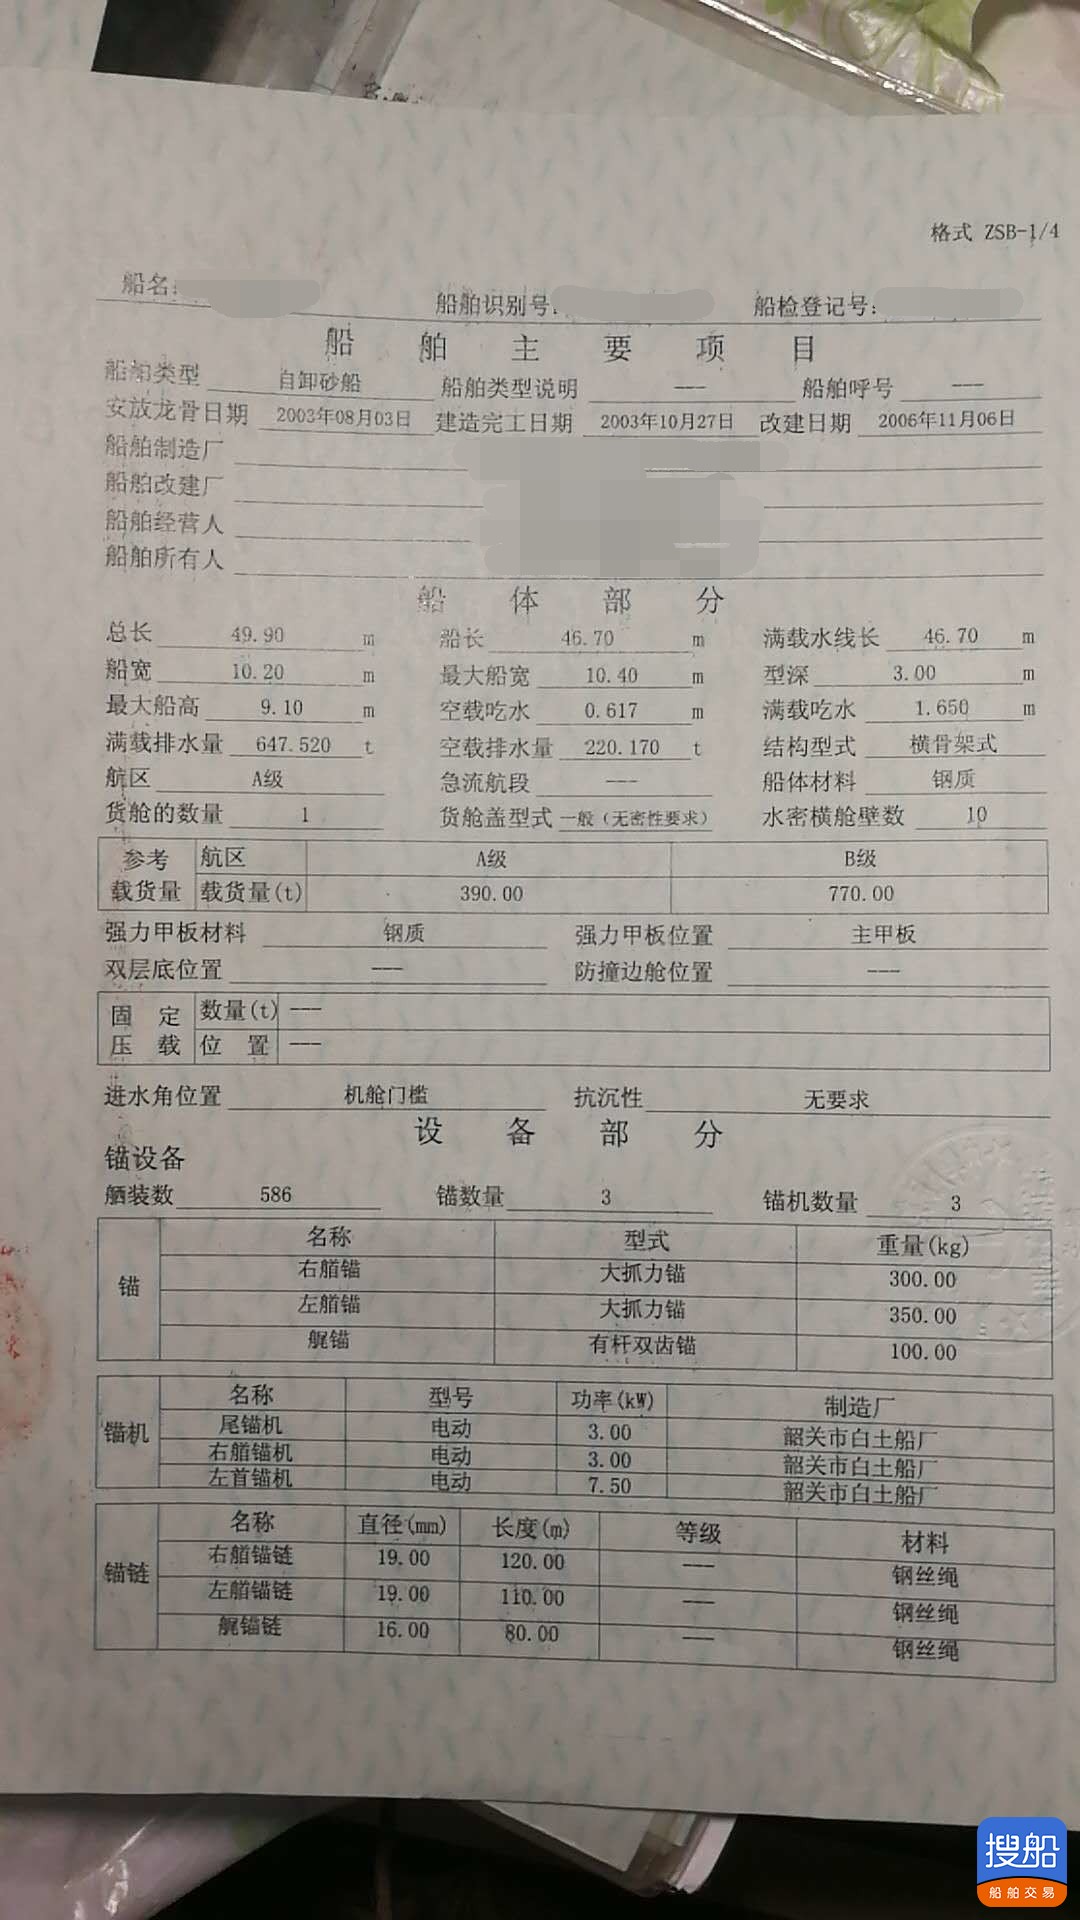 格式 ZSB-1/4
船名:
船舶识别号:
船检登记号:
船舶主要项目
船舶类型 自卸砂船 船舶类型说明 --- 船舶呼号 ---
安放龙骨日期 2003年08月03日 建造完工日期 2003年10月27日 改建日期 2006年11月06日
船舶制造厂
船舶改建厂
船舶经营人
船舶所有人
船体部分
总长 49.90 m 船长 46.70 m 满载水线长 46.70 m
船宽 10.20 m 最大船宽 10.40 m 型深 3.00 m
最大船高 9.10 m 空载吃水 0.617 m 满载吃水 1.650 m
满载排水量 647.520 t 空载排水量 220.170 t 结构型式 横骨架式
航区 A级 急流航段 --- 船体材料 钢质
货舱的数量 1 货舱盖型式 一般(无密性要求) 水密横舱壁数 10
参考载货量 航区 A级 B级
载货量(t) 390.00 770.00
强力甲板材料 钢质 强力甲板位置 主甲板
双层底位置 --- 防撞边舱位置 ---
固定压载 数量(t) ---
位置 ---
进水角位置 机舱门槛 抗沉性 无要求
设备部分
锚设备
舾装数 586 锚数量 3 锚机数量 3
锚 名称 型式 重量(kg)
右艏锚 大抓力锚 300.00
左艏锚 大抓力锚 350.00
艉锚 有杆双齿锚 100.00
锚机 名称 型号 功率(kW) 制造厂
尾锚机 电动 3.00 韶关市白土船厂
右艏锚机 电动 3.00 韶关市白土船厂
左首锚机 电动 7.50 韶关市白土船厂
锚链 名称 直径(mm) 长度(m) 等级 材料
右艏锚链 19.00 120.00 --- 钢丝绳
左艏锚链 19.00 110.00 --- 钢丝绳
艉锚链 16.00 80.00 --- 钢丝绳
搜船
船舶交易